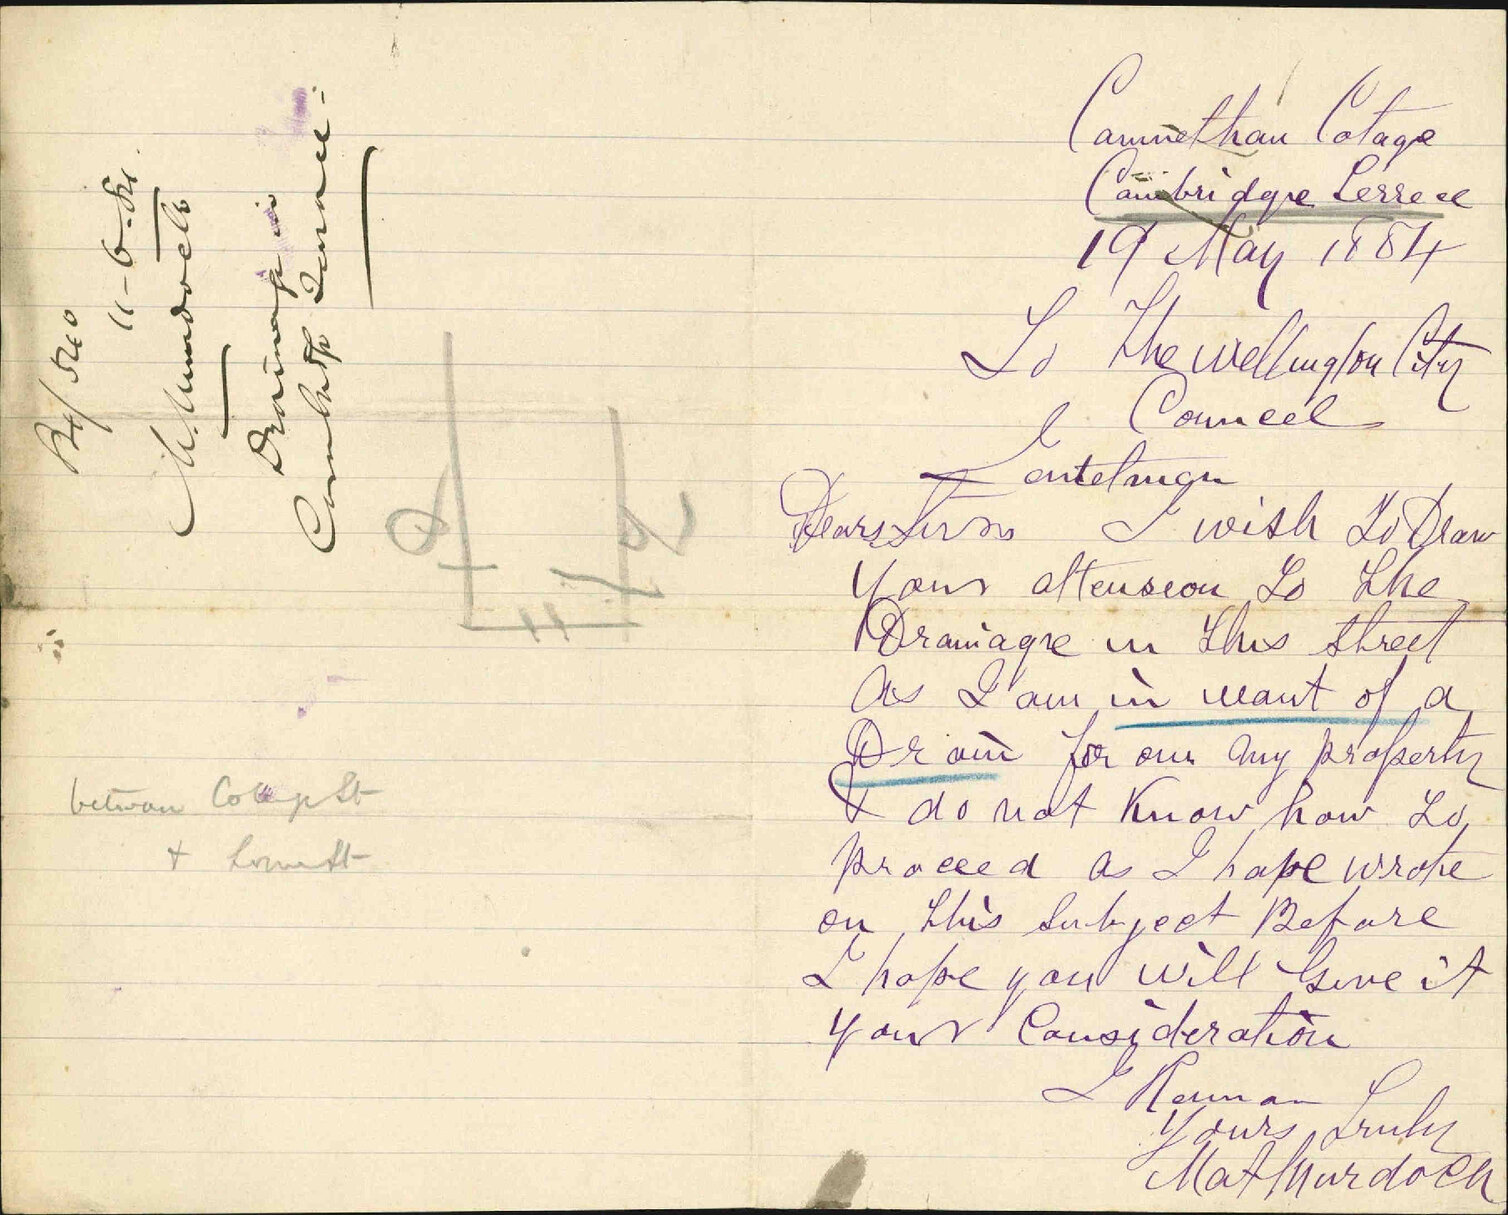 Camnethan Cotage
Cambridge Terrece
19 May 1884
To The Wellington City
Councel
Gentelman
Dears Sirs I wish To Draw
Your attension To The
Draniage in This Street
As I am in want of a
Drain for our my property
I do not Know how To
proceed as I hape wrote
on This Subject Before
I hope you will Give it
Your Consideration
I Reman
Yours Truly
Mat Murdoch
84/520
11-6-84
M. Murdoch
Drainage in
Cambdge Terrace
between College St
+ Lorne St